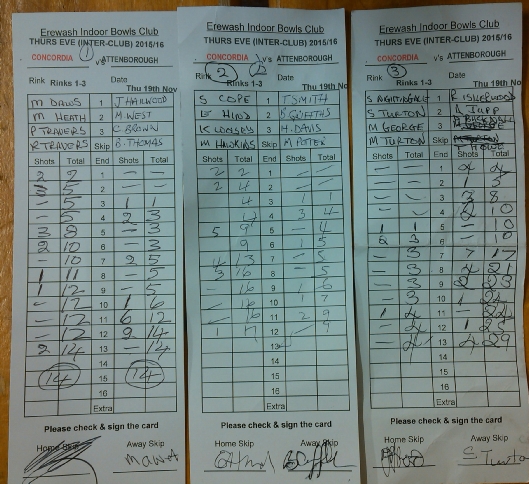 Erewash Indoor Bowls Club
THURS EVE (INTER-CLUB) 2015/16
CONCORDIA 1 v's ATTENBOROUGH
Rink Rinks 1-3 Date
Thu 19th Nov
M DAWS 1 J HALLWOOD
M HEATH 2 M WEST
P TRAVERS 3 C BROWN
R TRAVERS Skip B. THOMAS
Shots Total End Shots Total
2 2 1 - -
3 5 2 - -
- 5 3 1 1
- 5 4 2 3
3 8 5 - 3
2 10 6 - 3
- 10 7 2 5
1 11 8 - 5
1 12 9 - 5
- 12 10 1 6
- 12 11 6 12
- 12 12 2 14
2 14 13 - 14
14
14 15 14
16
Extra
Please check & sign the card
Home Skip Away Skip
Erewash Indoor Bowls Club
THURS EVE (INTER-CLUB) 2015/16
CONCORDIA v's ATTENBOROUGH
Rink 2 Rinks 1-3 Date
Thu 19th Nov
S COPE 1 T SMITH
2
3 H. DAVIS
M HAWKINS Skip M PETER
Shots Total End Shots Total
2 2 1 - -
2 4 2 - -
4 3 1 1
4 4 3 4
5 9 5 - 4
9 6 1 5
4 13 7 - 5
3 16 8 - 5
- 16 9 1 6
- 16 10 1 7
- 16 11 2 9
1 17 12 - 9
13
14
15
16
Extra
Please check & sign the card
Home Skip Away Skip
Erewash Indoor Bowls Club
THURS EVE (INTER-CLUB) 2015/16
CONCORDIA v's ATTENBOROUGH
Rink 3 Rinks 1-3 Date
Thu 19th Nov
S NIGHTINGALE 1
S TURTON 2 A JUPP
M GEORGE 3
M TURTON Skip
Shots Total End Shots Total
- - 1 4 4
- - 2 1 5
- - 3 3 8
- - 4 2 10
1 1 5 - 10
2 3 6 - 10
- 3 7 7 17
- 3 8 4 21
- 3 9 2 23
- 3 10 1 24
1 4 11 - 24
- 4 12 1 25
- 4 13 4 29
14
15
16
Extra
Please check & sign the card
Home Skip Away Skip